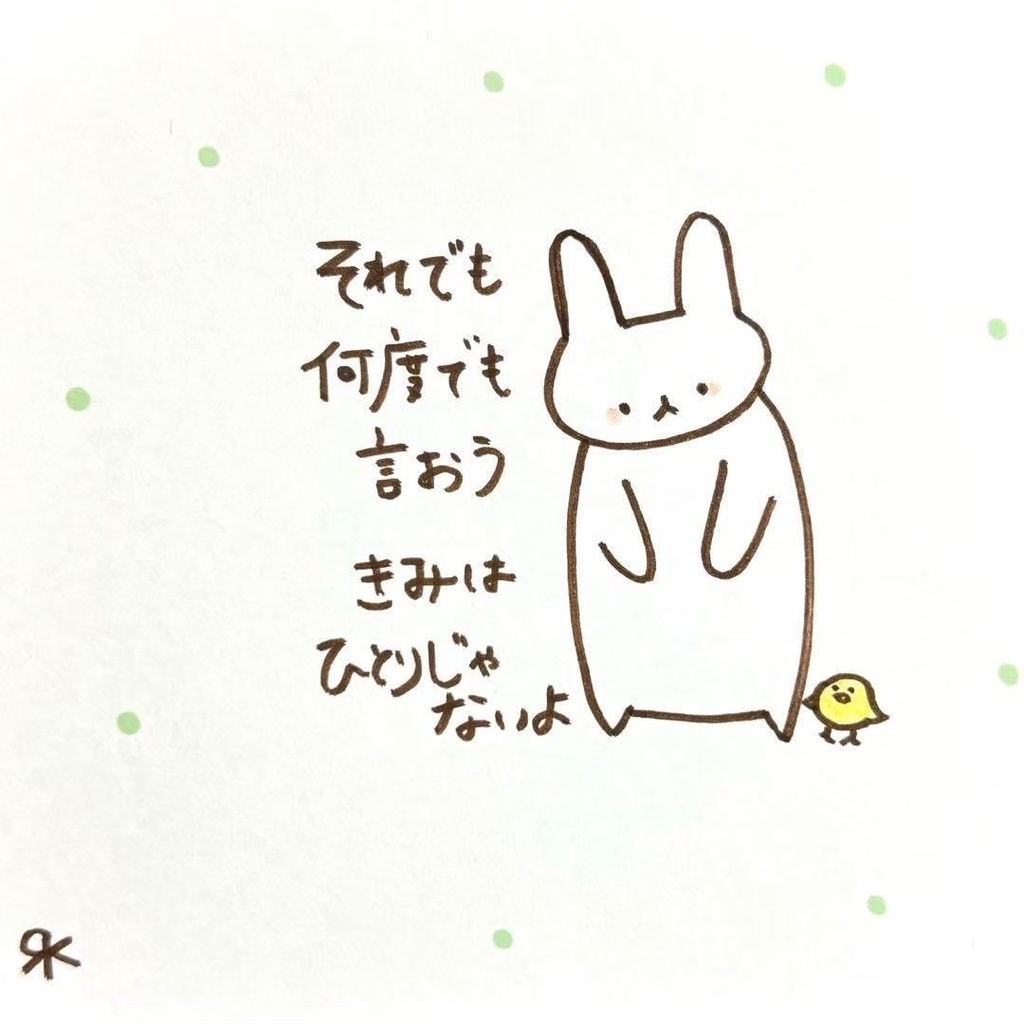 それでも
何度でも
言おう
きみは
ひとりじゃ
ないよ